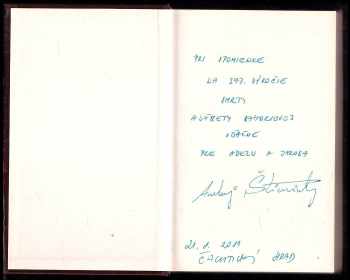 PRI SPOMIENKE
NA 397. VÝROČIE
SMRTI
ALŽBETY BÁTHORIOVEJ
VĎAČNE
PRE
A
Andrej Štiavnický
21. 8. 2011
ČACHTICKÝ HRAD